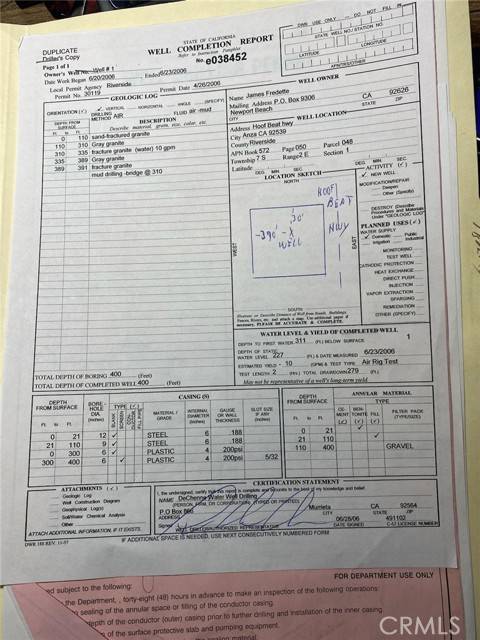 DUPLICATE
Driller's Copy
STATE OF CALIFORNIA
WELL COMPLETION REPORT
Refer to Instruction Pamphlet
No. e038452
DWR USE ONLY — DO NOT FILL IN
STATE WELL NO./ STATION NO.
LATITUDE
LONGITUDE
APN/TRS/OTHER
Page 1 of 1
Owner's Well No. Well # 1
Date Work Began 6/20/2006 Ended 6/23/2006
Local Permit Agency Riverside
Permit No. 30119 Permit Date 4/26/2006
GEOLOGIC LOG
ORIENTATION (✓) ✓ VERTICAL HORIZONTAL ANGLE (SPECIFY)
DRILLING METHOD AIR FLUID air -mud
DEPTH FROM SURFACE
Ft. to Ft.
DESCRIPTION
Describe material, grain, size, color, etc.
0 110 sand-fractured granite
110 310 Gray granite
310 335 fracture granite (water) 10 gpm
335 389 Gray granite
389 391 fracture granite
mud drilling -bridge @ 310
TOTAL DEPTH OF BORING 400 (Feet)
TOTAL DEPTH OF COMPLETED WELL 400 (Feet)
WELL OWNER
Name James Fredette
Mailing Address P.O. Box 9306
Newport Beach CA 92626
CITY STATE ZIP
WELL LOCATION
Address Hoof Beat hwy
City Anza CA 92539
County Riverside
APN Book 572 Page 050 Parcel 048
Township 7 S Range 2 E Section 1
Latitude
DEG. MIN. SEC.
DEG. MIN. SEC.
LOCATION SKETCH
NORTH
WEST
EAST
SOUTH
HOOF
BEAT
HWY
30'
-390'-X
WELL
Illustrate or Describe Distance of Well from Roads, Buildings,
Fences, Rivers, etc. and attach a map. Use additional paper if
necessary. PLEASE BE ACCURATE & COMPLETE.
ACTIVITY (✓)
✓ NEW WELL
MODIFICATION/REPAIR
Deepen
Other (Specify)
DESTROY (Describe
Procedures and Materials
Under "GEOLOGIC LOG")
PLANNED USES (✓)
WATER SUPPLY
✓ Domestic Public
Irrigation Industrial
MONITORING
TEST WELL
CATHODIC PROTECTION
HEAT EXCHANGE
DIRECT PUSH
INJECTION
VAPOR EXTRACTION
SPARGING
REMEDIATION
OTHER (SPECIFY)
WATER LEVEL & YIELD OF COMPLETED WELL
DEPTH TO FIRST WATER 311 (Ft.) BELOW SURFACE 1
DEPTH OF STATIC
WATER LEVEL 227 (Ft.) & DATE MEASURED 6/23/2006
ESTIMATED YIELD 10 (GPM) & TEST TYPE Air Rig Test
TEST LENGTH 2 (Hrs.) TOTAL DRAWDOWN 279 (Ft.)
May not be representative of a well's long-term yield.
DEPTH FROM SURFACE
Ft. to Ft.
BORE-HOLE DIA. (Inches)
CASING (S)
TYPE (✓)
BLANK
SCREEN
MATERIAL / GRADE
INTERNAL DIAMETER (Inches)
GAUGE OR WALL THICKNESS
SLOT SIZE IF ANY (Inches)
0 21 12 ✓ STEEL 6 .188
21 110 9 ✓ STEEL 6 .188
0 300 6 ✓ PLASTIC 4 200psi
300 400 6 ✓ PLASTIC 4 200psi 5/32
DEPTH FROM SURFACE
Ft. to Ft.
ANNULAR MATERIAL
TYPE
CE-MENT (✓)
BEN-TONITE (✓)
FILL (✓)
FILTER PACK (TYPE/SIZE)
0 21 ✓
21 110 ✓
110 400 GRAVEL
ATTACHMENTS (✓)
Geologic Log
Well Construction Diagram
Geophysical Log(s)
Soil/Water Chemical Analysis
Other
ATTACH ADDITIONAL INFORMATION, IF IT EXISTS.
CERTIFICATION STATEMENT
I, the undersigned, certify that this report is complete and accurate to the best of my knowledge and belief.
NAME DeChenne Water Well Drilling
(PERSON, FIRM, OR CORPORATION) (TYPED OR PRINTED)
Murrieta CA 92564
ADDRESS CITY STATE ZIP
Signed 06/28/06 491102
WELL DRILLER/AUTHORIZED REPRESENTATIVE DATE SIGNED C-57 LICENSE NUMBER
DWR 188 REV. 11-97
IF ADDITIONAL SPACE IS NEEDED, USE NEXT CONSECUTIVELY NUMBERED FORM
FOR DEPARTMENT USE ONLY
ed subject to the following:
the Department, , forty-eight (48) hours in advance to make an inspection of the following operations:
o sealing of the annular space or filling of the conductor casing.
depth of the conductor (outer) casing prior to further drilling and installation of the inner casing
of the surface protective slab and pumping equipment.
CRMLS